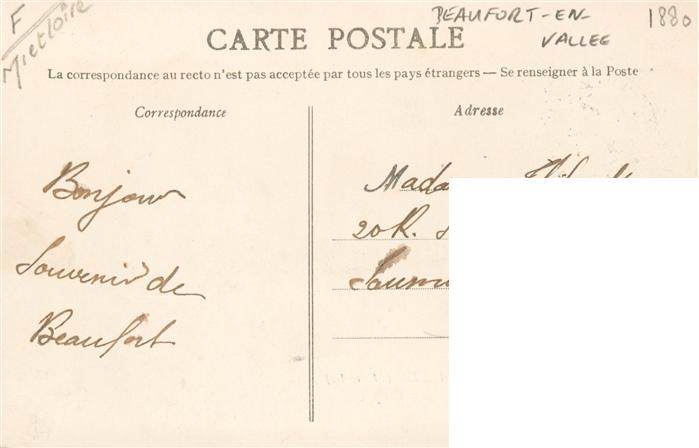 F
M i et loire
BEAUFORT-EN-
VALLEE
1880
CARTE POSTALE
La correspondance au recto n'est pas acceptée par tous les pays étrangers — Se renseigner à la Poste
Correspondance
Adresse
Bonjour
Souvenir de
Beaufort
Mada
20 R.
Saumu